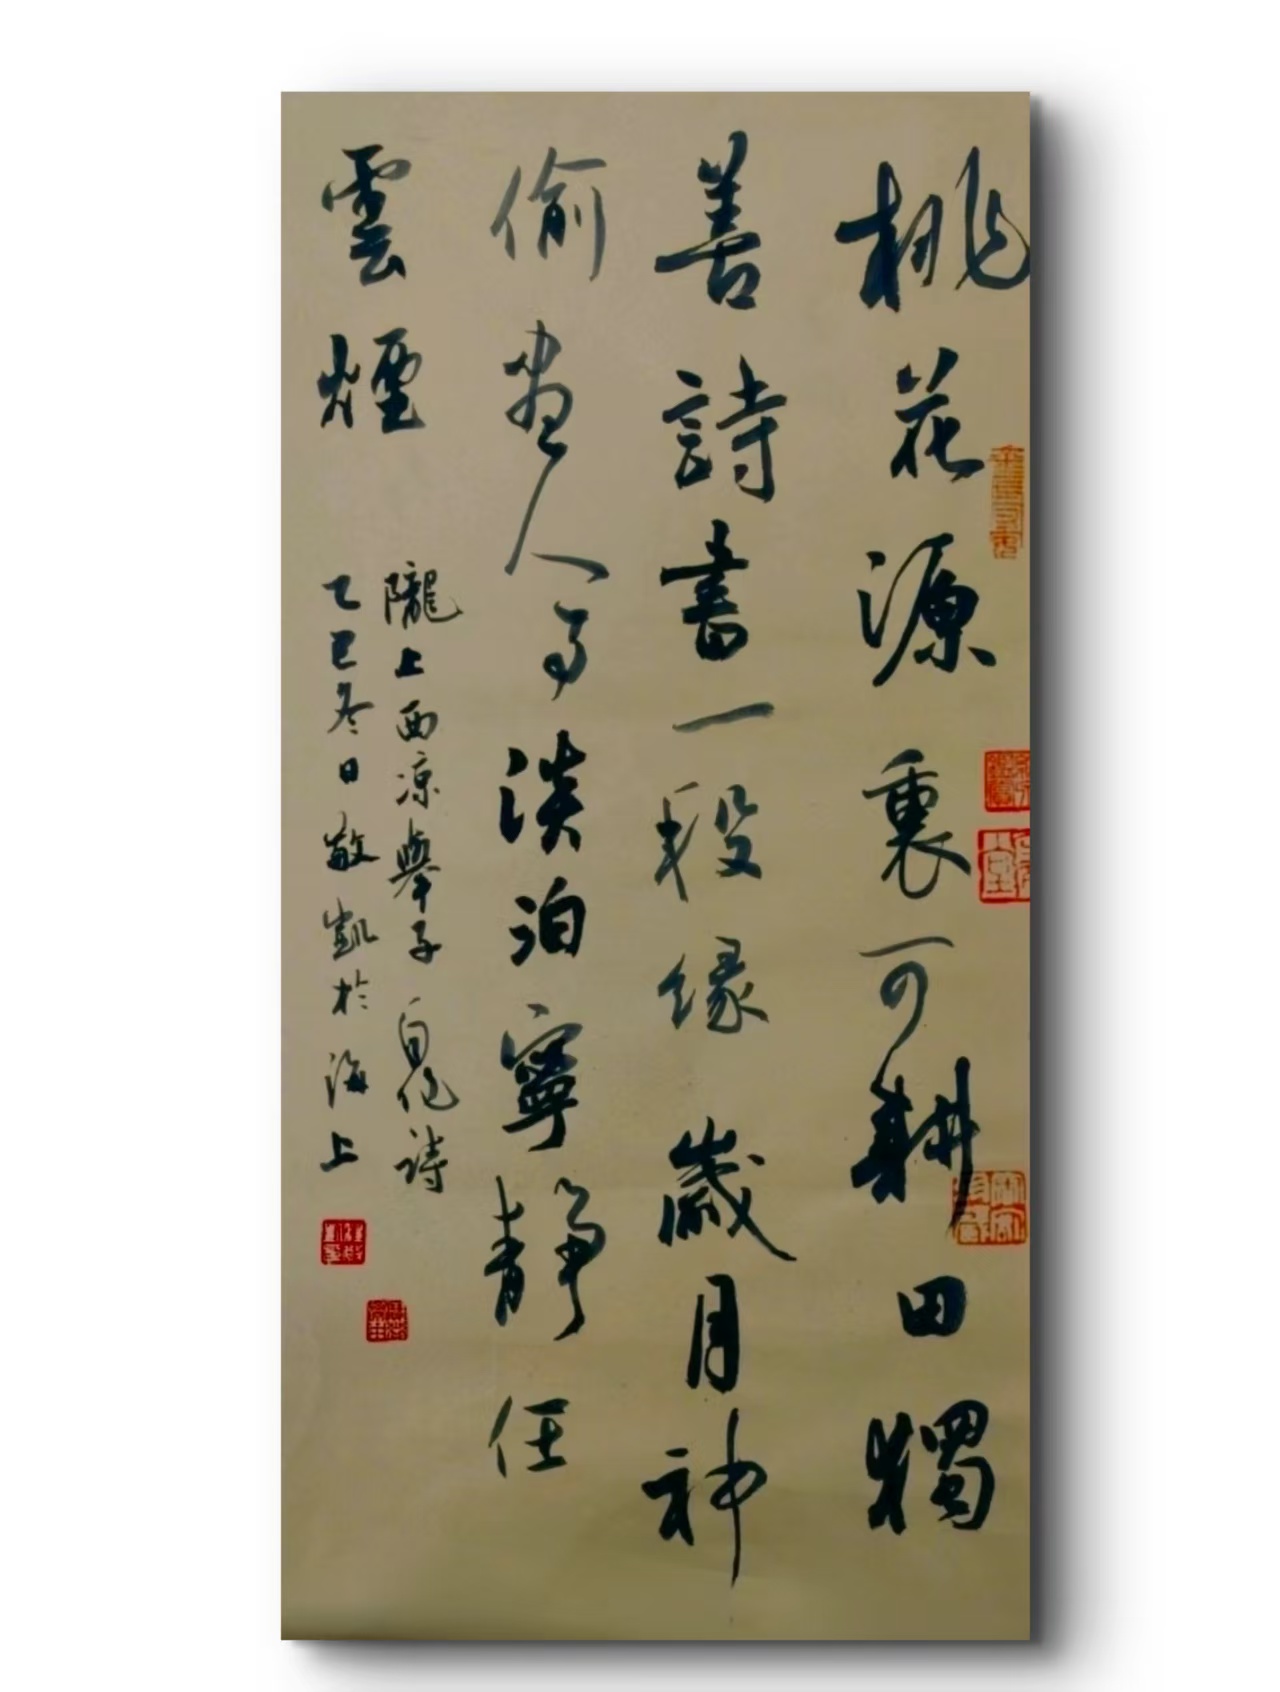 桃花源裏可耕田獨
善詩書一段緣歲月神
偷盡人事淡泊寧靜任
雲煙
隴上西涼舉子自作詩
乙巳冬日敬凱於海上